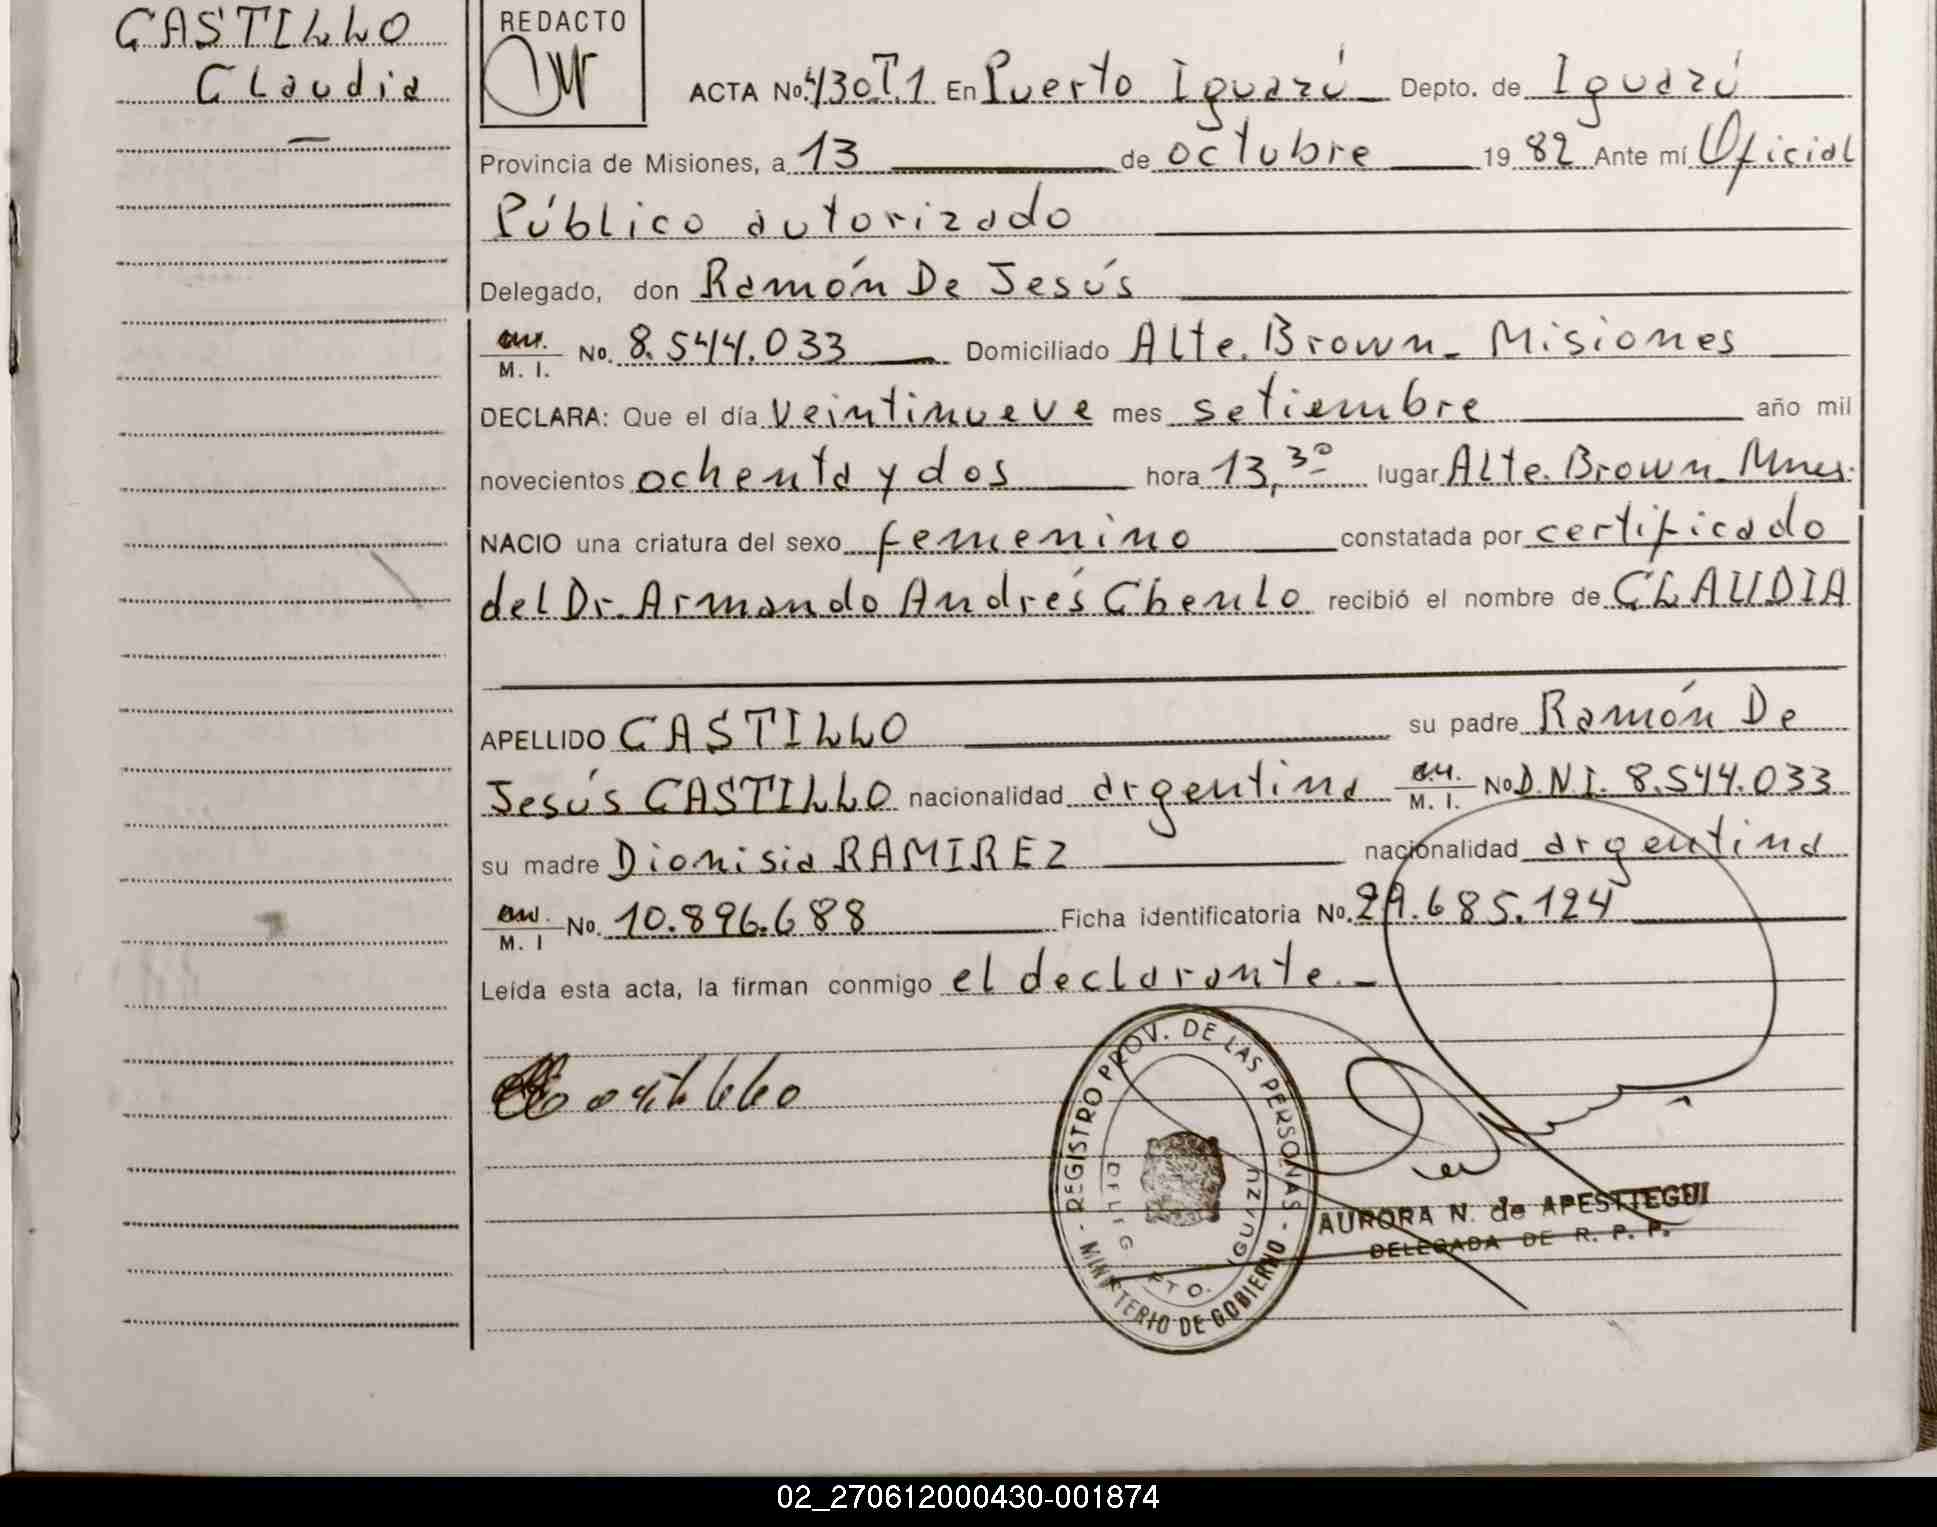 CASTILLO
Claudia
REDACTO
ACTA No. 430 T.1 En Puerto Iguazú Depto. de Iguazú
Provincia de Misiones, a 13 de octubre 19 82 Ante mí Oficial
Público autorizado
Delegado, don Ramón De Jesús
M. I. No. 8.544.033 Domiciliado Alte. Brown - Misiones
DECLARA: Que el día veintinueve mes setiembre año mil
novecientos ochenta y dos hora 13,30 lugar Alte. Brown - Mnes.
NACIO una criatura del sexo femenino constatada por certificado
del Dr. Armando Andrés Chenlo recibió el nombre de CLAUDIA
APELLIDO CASTILLO su padre Ramón De
Jesús CASTILLO nacionalidad argentina M. I. No D.N.I. 8.544.033
su madre Dionisia RAMIREZ nacionalidad argentina
M. I No. 10.896.688 Ficha identificatoria No. 29.685.124
Leída esta acta, la firman conmigo el declarante.-
Castillo
REGISTRO PROV. DE LAS PERSONAS - MINISTERIO DE GOBIERNO -
DELEG. PTO. IGUAZU
AURORA N. de APESTTEGUI
DELEGADA DE R. P. P.
02_270612000430-001874